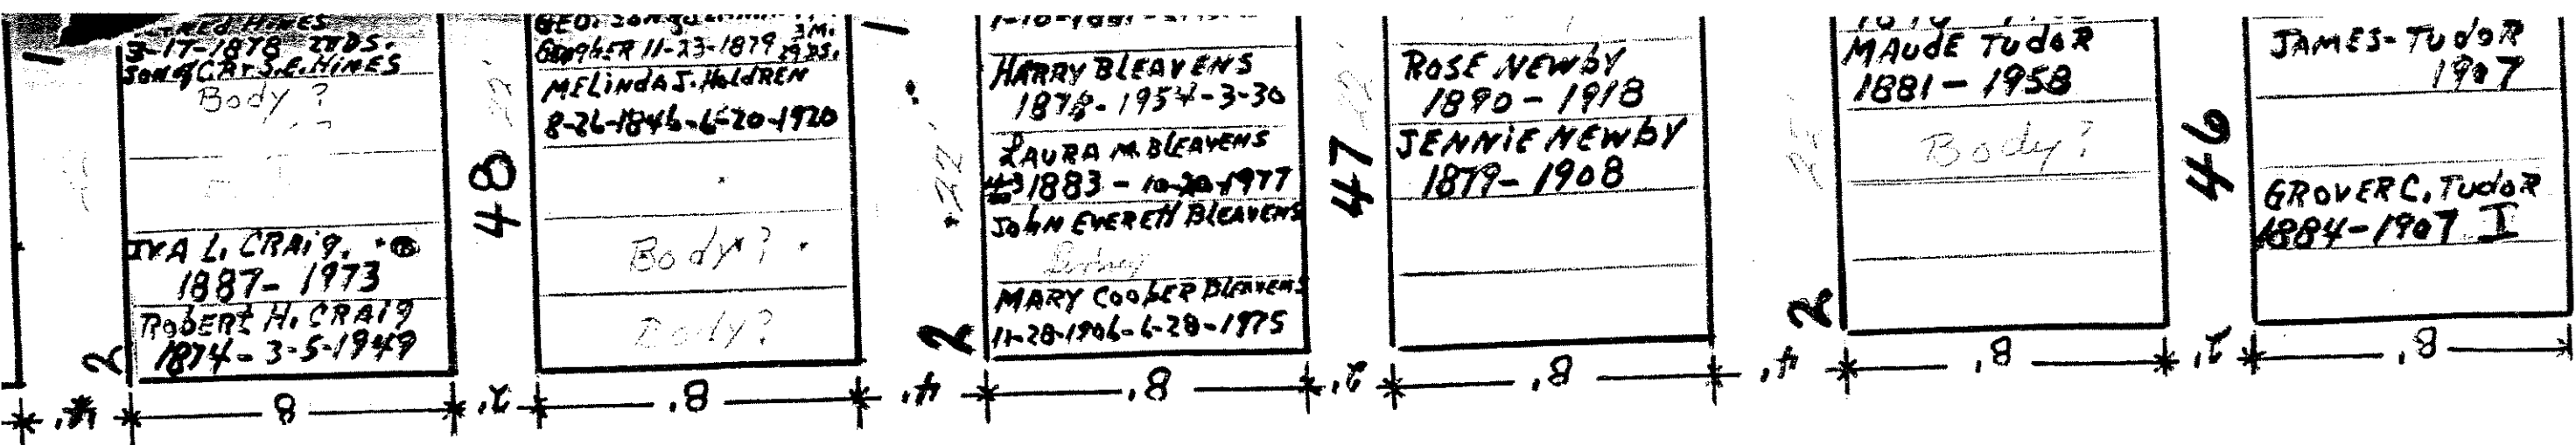 3-17-1878 27DS.
SON of C.A. & S.E. HINES
Body ?
IVA L. CRAIG.
1887- 1973
ROBERT H. CRAIG
1874- 3-5-1949
2
48
11-23-1879 29 DS.
3M.
MELINDA J. HOLDREN
8-26-1846-6-20-1920
Body ?
Body?
22
HARRY BLEAVENS
1878-1954-3-30
LAURA M. BLEAVENS
1883 - 10-20-1977
JOHN EVERETT BLEAVENS
MARY COOPER BLEAVENS
11-28-1906-6-28-1975
2
47
ROSE NEWBY
1890 - 1918
JENNIE NEWBY
1879- 1908
MAUDE TUDOR
1881 - 1958
Body?
2
46
JAMES-TUDOR
1907
GROVER C. TUDOR
1884-1907 I
4' 8 2' 8' 4' 8' 2' 8' 4' 8' 2' 8'